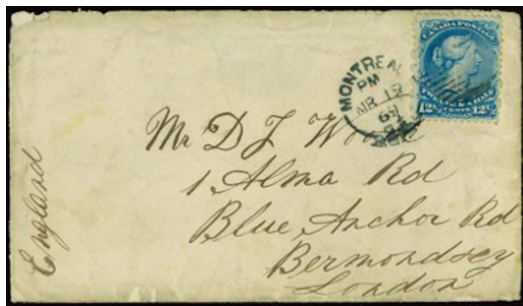 CANADA POSTAGE
12½ CENTS 12½
MONTREAL
PM
MR 12
69
Mr D J Wood
1 Alma Rd
Blue Anchor Rd
Bermondsey
London
England